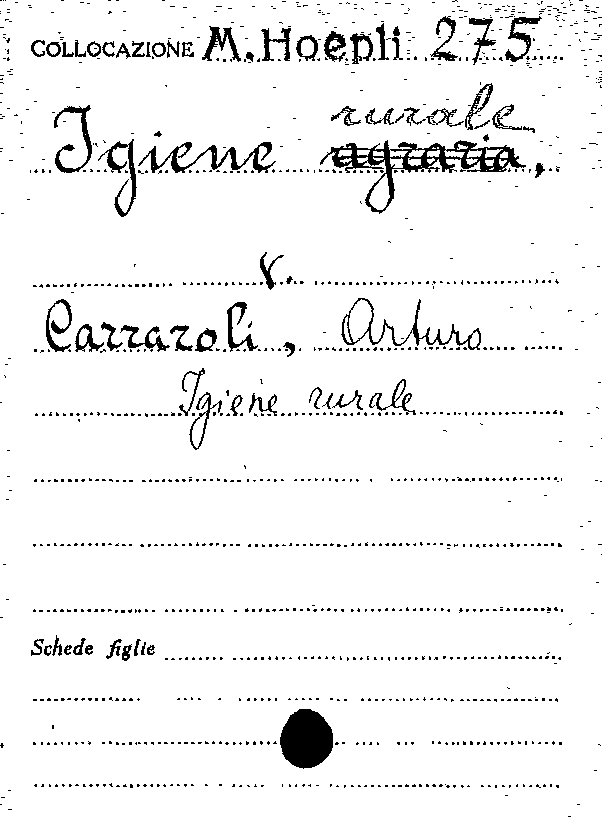 COLLOCAZIONE M. Hoepli 275
rurale
Igiene agraria,
v.
Carraroli, Arturo
Igiene rurale
Schede figlie